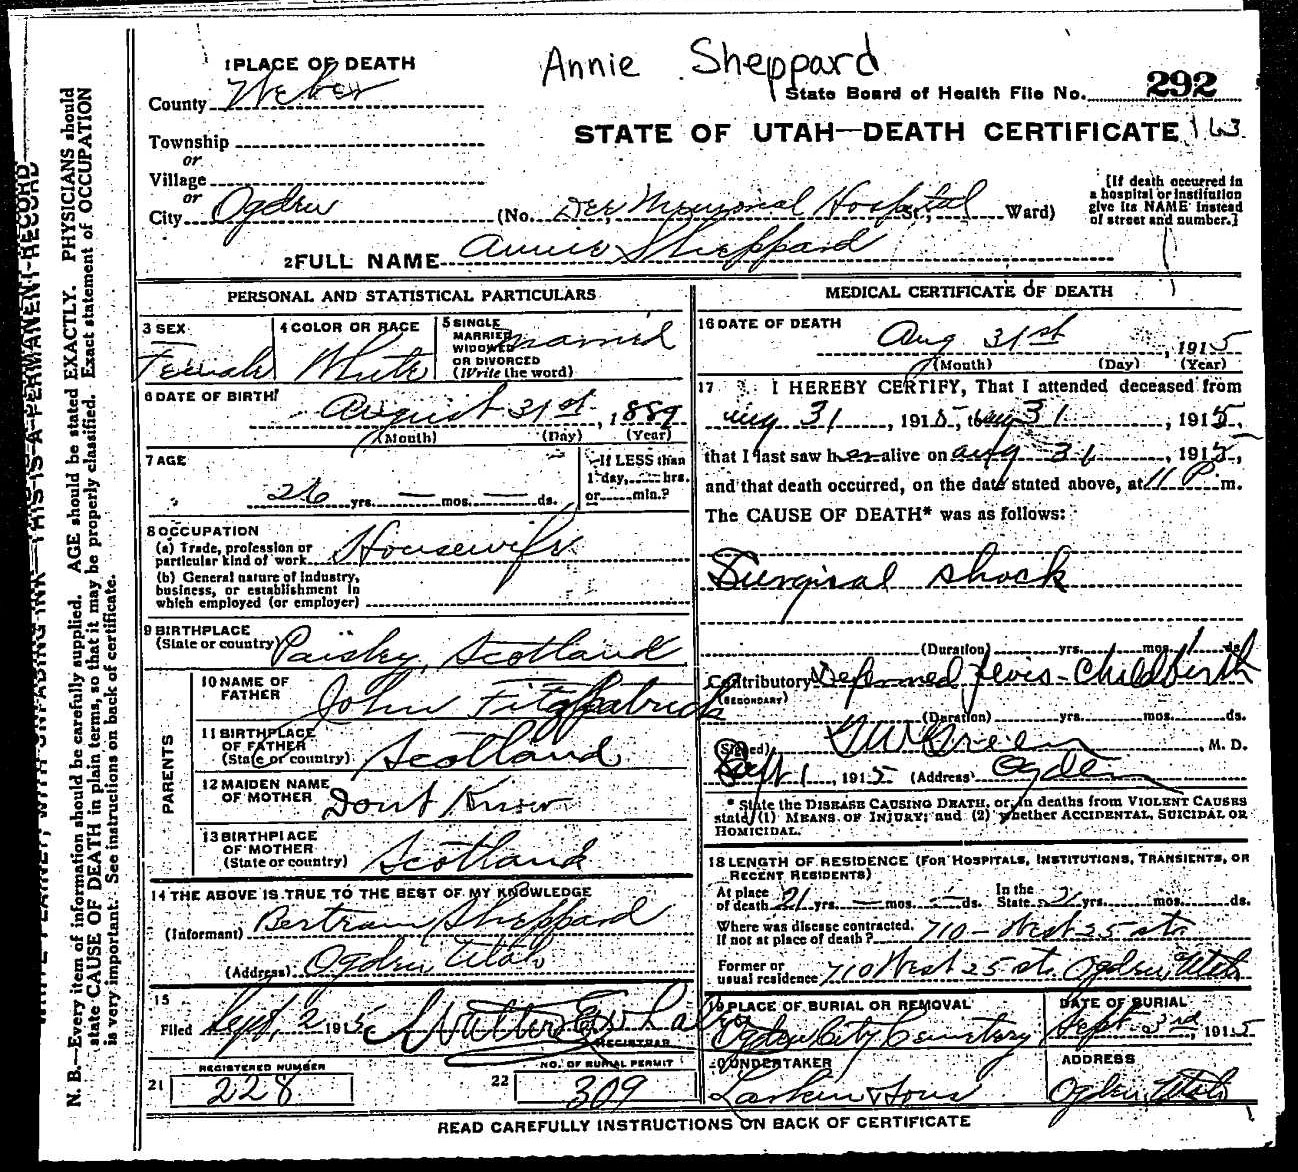 Annie Sheppard
1 PLACE OF DEATH
County Weber
State Board of Health File No. 292
STATE OF UTAH—DEATH CERTIFICATE 163
Township
or
Village
or
City Ogden (No. Dee Memorial Hospital St.; Ward)
[If death occurred in
a hospital or institution
give its NAME instead
of street and number.]
2 FULL NAME Annie Sheppard
PERSONAL AND STATISTICAL PARTICULARS
3 SEX
Female
4 COLOR OR RACE
White
5 SINGLE
MARRIED
WIDOWED
OR DIVORCED
(Write the word)
Married
6 DATE OF BIRTH
August 31st, 1889
(Month) (Day) (Year)
7 AGE
26 yrs. — mos. — ds.
If LESS than
1 day, hrs.
or min.?
8 OCCUPATION
(a) Trade, profession or
particular kind of work Housewife
(b) General nature of industry,
business, or establishment in
which employed (or employer)
9 BIRTHPLACE
(State or country) Paisley, Scotland
PARENTS
10 NAME OF
FATHER John Fitzpatrick
11 BIRTHPLACE
OF FATHER
(State or country) Scotland
12 MAIDEN NAME
OF MOTHER Dont Know
13 BIRTHPLACE
OF MOTHER
(State or country) Scotland
14 THE ABOVE IS TRUE TO THE BEST OF MY KNOWLEDGE
(Informant) Bertram Sheppard
(Address) Ogden Utah
15
Filed Sept. 2 1915
REGISTRAR
REGISTERED NUMBER
21 228
NO. OF BURIAL PERMIT
22 309
MEDICAL CERTIFICATE OF DEATH
16 DATE OF DEATH
Aug 31st, 1915
(Month) (Day) (Year)
17 I HEREBY CERTIFY, That I attended deceased from
Aug 31, 1915, to Aug 31, 1915,
that I last saw her alive on Aug 31, 1915,
and that death occurred, on the date stated above, at 11 P m.
The CAUSE OF DEATH* was as follows:
Surgical shock
(Duration) yrs. mos. ds.
Contributory Deformed Pelvis - Childbirth
(SECONDARY)
(Duration) yrs. mos. ds.
(Signed) Green, M. D.
Sept 1, 1915 (Address) Ogden
* State the DISEASE CAUSING DEATH, or, in deaths from VIOLENT CAUSES
state (1) MEANS OF INJURY; and (2) whether ACCIDENTAL, SUICIDAL OR
HOMICIDAL.
18 LENGTH OF RESIDENCE (FOR HOSPITALS, INSTITUTIONS, TRANSIENTS, OR
RECENT RESIDENTS)
At place
of death 21 yrs. — mos. — ds.
In the
State 21 yrs. mos. ds.
Where was disease contracted,
If not at place of death? 710 - West 25 st.
Former or
usual residence 710 West 25 st. Ogden, Utah
19 PLACE OF BURIAL OR REMOVAL
Ogden City Cemetery
DATE OF BURIAL
Sept. 3rd, 1915
20 UNDERTAKER
Larkin & Sons
ADDRESS
Ogden, Utah
READ CAREFULLY INSTRUCTIONS ON BACK OF CERTIFICATE
WRITE PLAINLY, WITH UNFADING INK—THIS IS A PERMANENT RECORD
N. B.—Every item of information should be carefully supplied. AGE should be stated EXACTLY. PHYSICIANS should
state CAUSE OF DEATH in plain terms, so that it may be properly classified. Exact statement of OCCUPATION
is very important. See instructions on back of certificate.